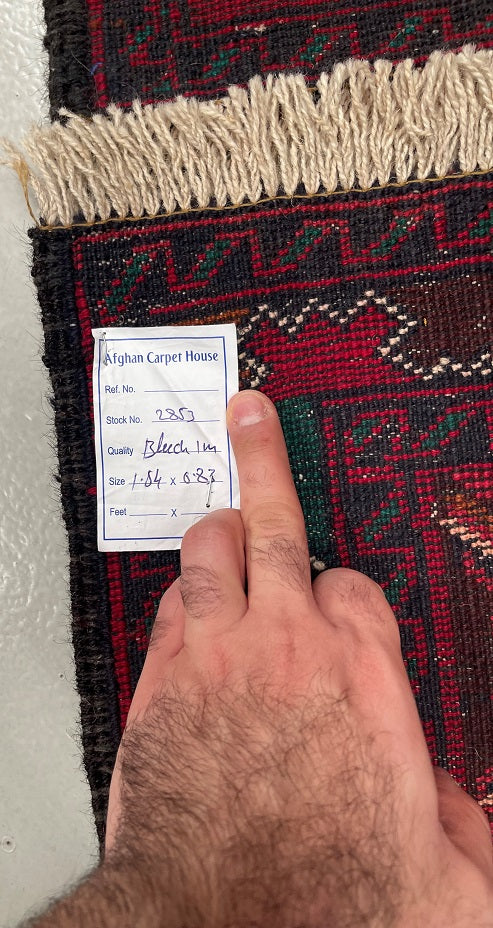 Afghan Carpet House
Ref. No.
Stock No. 2853
Quality
Size 1.54 x 0.83
Feet x